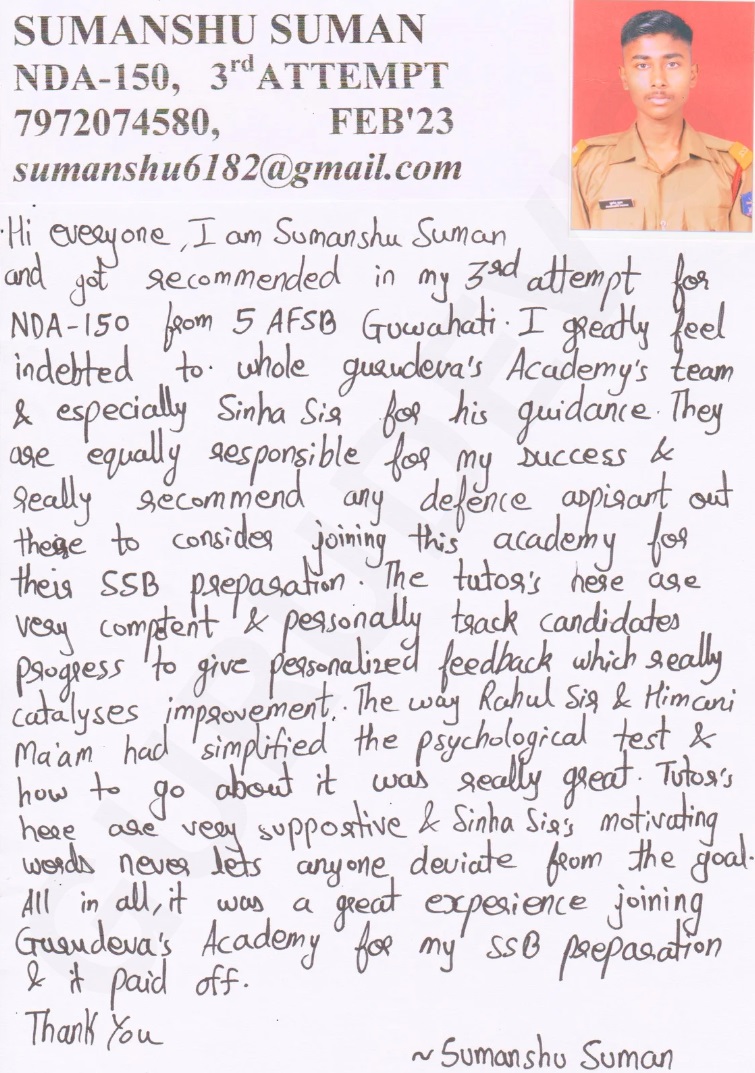 SUMANSHU SUMAN
NDA-150, 3rd ATTEMPT
7972074580, FEB'23
sumanshu6182@gmail.com
Hi everyone, I am Sumanshu Suman
and got recommended in my 3rd attempt for
NDA-150 from 5 AFSB Guwahati. I greatly feel
indebted to whole gurudeva's Academy's team
& especially Sinha Sir for his guidance. They
are equally responsible for my success &
really recommend any defence aspirant out
there to consider joining this academy for
their SSB preparation. The tutor's here are
very competent & personally track candidates
progress to give personalized feedback which really
catalyses improvement. The way Rahul Sir & Himani
Ma'am had simplified the psychological test &
how to go about it was really great. Tutor's
here are very supportive & Sinha Sir's motivating
words never lets anyone deviate from the goal.
All in all, it was a great experience joining
Gurudeva's Academy for my SSB preparation
& it paid off.
Thank You
~Sumanshu Suman